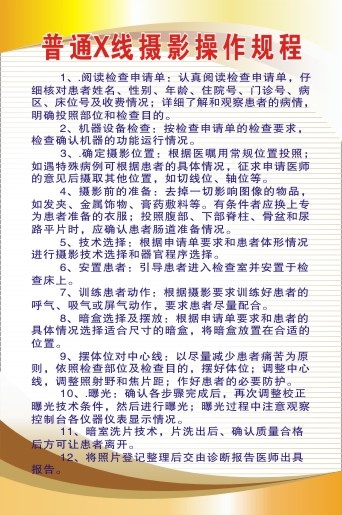 普通X线摄影操作规程
1、.阅读检查申请单：认真阅读检查申请单，仔
细核对患者姓名、性别、年龄、住院号、门诊号、病
区、床位号及收费情况；详细了解和观察患者的病情，
明确投照部位和检查目的。
2、机器设备检查：按检查申请单的检查要求，
检查确认机器的功能运行情况。
3、.确定摄影位置：根据医嘱用常规位置投照；
如遇特殊病例可根据患者的具体情况，征求申请医师
的意见后摄取其他位置，如切线位、轴位等。
4、摄影前的准备：去掉一切影响图像的物品，
如发夹、金属饰物、膏药敷料等。有条件者应换上专
为患者准备的衣服；投照腹部、下部脊柱、骨盆和尿
路平片时，应确认患者肠道准备情况。
5、技术选择：根据申请单要求和患者体形情况
进行摄影技术选择和器官程序选择。
6、安置患者：引导患者进入检查室并安置于检
查床上。
7、训练患者动作：根据摄影要求训练好患者的
呼气、吸气或屏气动作，要求患者尽量配合。
8、暗盒选择及摆放：根据申请单要求和患者的
具体情况选择适合尺寸的暗盒，将暗盒放置在合适的
位置。
9、摆体位对中心线：以尽量减少患者痛苦为原
则，依照检查部位及检查目的，摆好体位；调整中心
线，调整照射野和焦片距；作好患者的必要防护。
10、.曝光：确认各步骤完成后，再次调整校正
曝光技术条件，然后进行曝光；曝光过程中注意观察
控制台各仪器仪表显示情况。
11、暗室洗片技术，片洗出后、确认质量合格
后方可让患者离开。
12、将照片登记整理后交由诊断报告医师出具
报告。